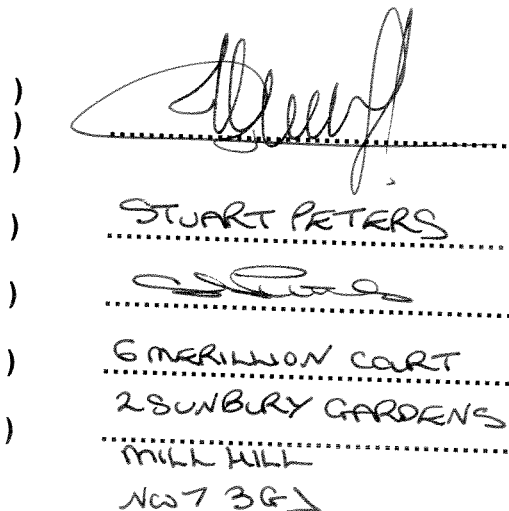 STUART PETERS
6 MERILLION COURT
2 SUNBURY GARDENS
MILL HILL
NW7 3G